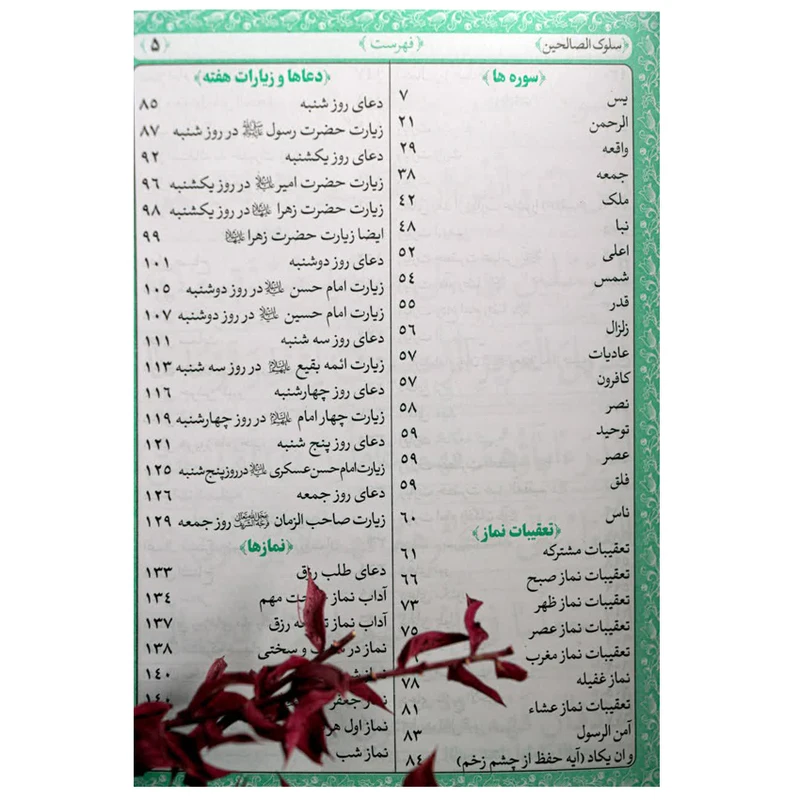 سلوک الصالحین
فهرست
۵
سوره ها
یس ۷
الرحمن ۲۱
واقعه ۲۹
جمعه ۳۸
ملک ۴۲
نبا ۴۸
اعلی ۵۲
شمس ۵۴
قدر ۵۵
زلزال ۵۶
عادیات ۵۷
کافرون ۵۷
نصر ۵۸
توحید ۵۹
عصر ۵۹
فلق ۵۹
ناس ۶۰
تعقیبات نماز
تعقیبات مشترکه ۶۱
تعقیبات نماز صبح ۶۶
تعقیبات نماز ظهر ۷۳
تعقیبات نماز عصر ۷۵
تعقیبات نماز مغرب
نماز غفیله ۷۸
تعقیبات نماز عشاء ۸۱
آمن الرسول ۸۳
و ان یکاد (آیه حفظ از چشم زخم) ۸۴
دعاها و زیارات هفته
دعای روز شنبه ۸۵
زیارت حضرت رسول ﷺ در روز شنبه ۸۷
دعای روز یکشنبه ۹۲
زیارت حضرت امیر علیه‌السلام در روز یکشنبه ۹۶
زیارت حضرت زهرا علیهاالسلام در روز یکشنبه ۹۸
ایضا زیارت حضرت زهرا علیهاالسلام ۹۹
دعای روز دوشنبه ۱۰۱
زیارت امام حسن علیه‌السلام در روز دوشنبه ۱۰۵
زیارت امام حسین علیه‌السلام در روز دوشنبه ۱۰۷
دعای روز سه شنبه ۱۱۱
زیارت ائمه بقیع علیهم‌السلام در روز سه شنبه ۱۱۳
دعای روز چهارشنبه ۱۱۶
زیارت چهار امام علیهم‌السلام در روز چهارشنبه ۱۱۹
دعای روز پنج شنبه ۱۲۱
زیارت امام حسن عسکری علیه‌السلام در روز پنج شنبه ۱۲۵
دعای روز جمعه ۱۲۶
زیارت صاحب الزمان روز جمعه ۱۲۹
نمازها
دعای طلب رزق ۱۳۳
آداب نماز مهم ۱۳۴
آداب نماز رزق ۱۳۷
نماز در و سختی ۱۳۸
نماز ۱۴۰
نماز جعفر ۱۴۰
نماز اول
نماز شب